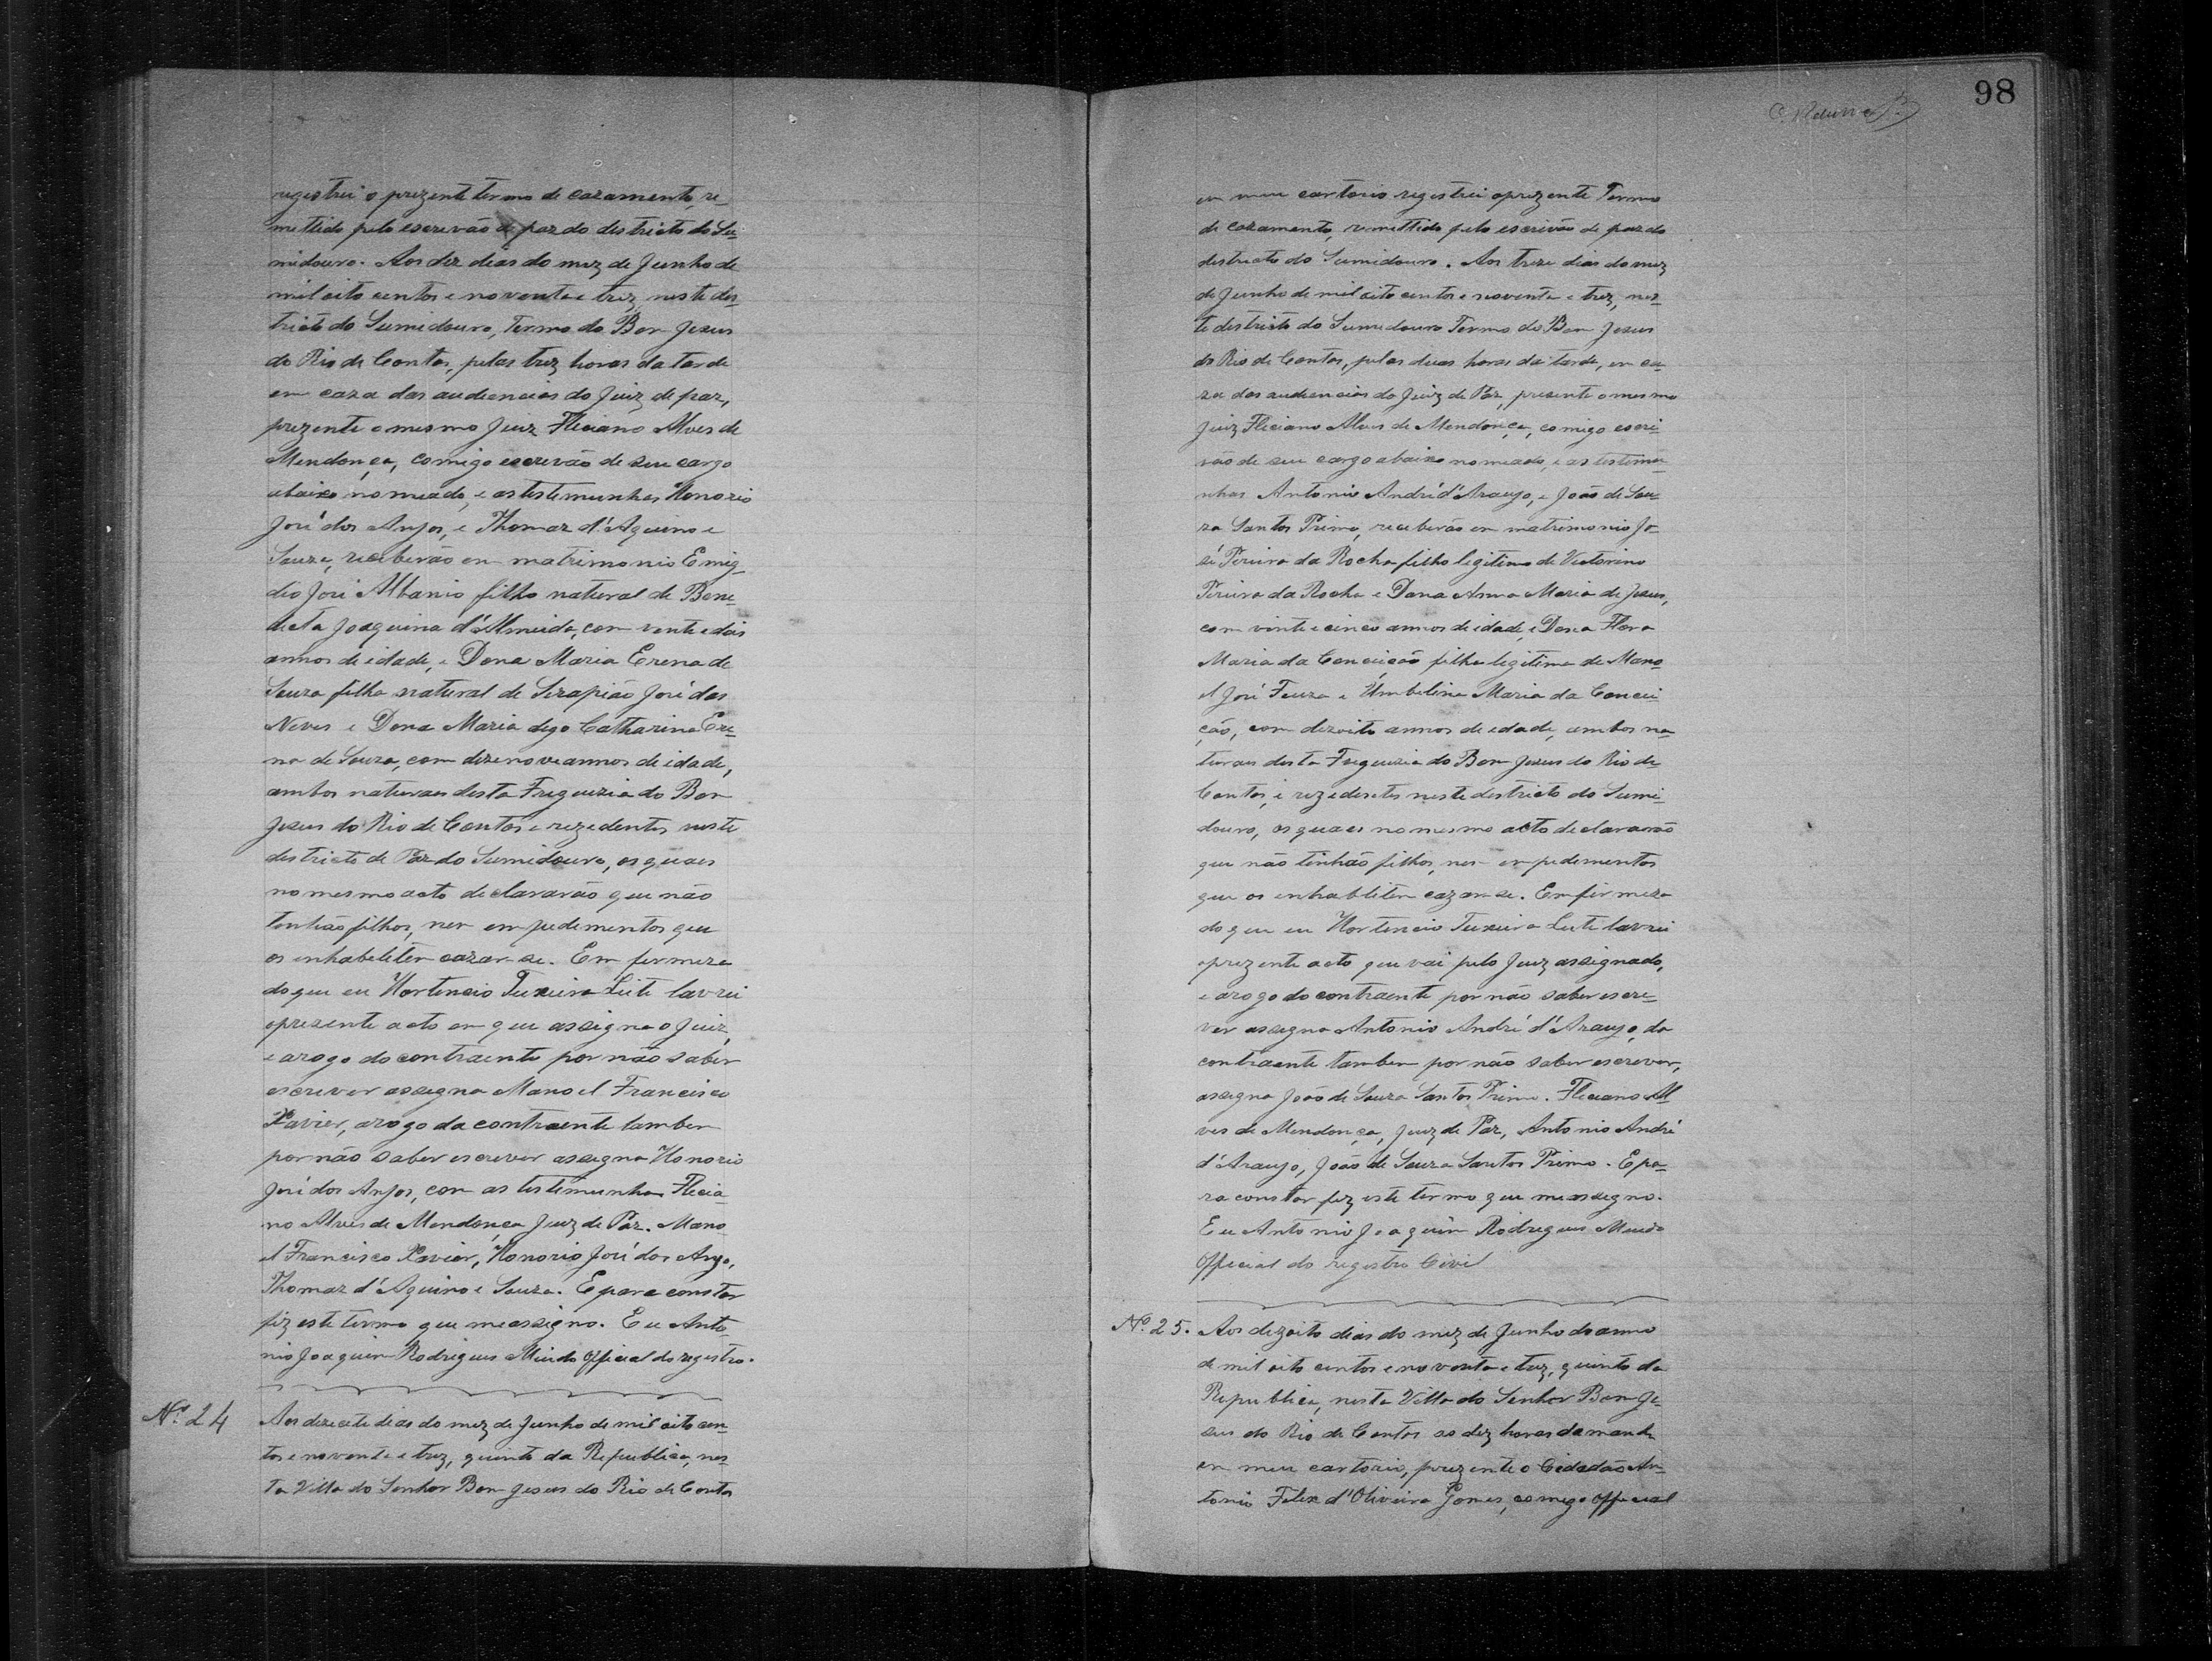 registrei o prezente termo de cazamento, re-
mettido pelo escrevão de paz do destricto do Su-
midouro. Aos dez dias do mez de Junho de
mil oito centos e noventa e trez, neste des-
tricto do Sumidouro, Termo do Bom Jesus
do Rio de Contas, pelas trez horas da tarde
em caza das audiencias do Juiz de paz,
prezente o mesmo Juiz Fleciano Alves de
Mendonça, comigo escrevão de seu cargo
abaixo nomeado, e as testemunhas Honorio
José dos Anjos, e Thomaz d'Aquino e
Souza, receberão em matrimonio Emig-
dio José Albanio filho natural de Bene-
dicta Joaquina d'Almeida, com vente e dois
annos de idade, e Dona Maria Erena de
Souza filha natural de Serapião José das
Neves e Dona Maria digo Catharina Ere-
na de Souza, com dezenove annos de idade,
ambos naturaes desta Freguezia do Bom
Jesus do Rio de Contas e rezedentes neste
destricto de Paz do Sumidouro, os quaes
no mesmo acto declararão que não
tenhão filhos, nem empedementos que
os enhabeliten cazar-se. Em fermeza
do que eu Hortencio Teixeira Leite lavrei
o prezente acto em que assigna o Juiz,
e arogo do contraente por não saber
escrever assegna Manoel Francisco
Xavier, arogo da contraente tambem
por não saber escrever assegna Honorio
José dos Anjos, com as testemunhas Flecia-
no Alves de Mendonça Juiz de Paz. Mano-
el Francisco Xavier, Honorio José dos Anjo,
Thomaz d'Aquino e Souza. E para constar
fiz este termo que me assigno. Eu Anto-
nio Joaquim Rodrigues Official do registro.
Nº 24 Aos dezecete dias do mez de Junho de mil oito cen-
tos e noventa e trez, quinto da Republica, nes-
ta Villa do Senhor Bom Jesus do Rio de Contas
98
em meu cartorio registrei o prezente Termo
de cazamento, remettido pelo escrivão de paz do
destricto do Sumidouro. Aos treze dias do mez
de Junho de mil oito centos e noventa e trez, nes-
te destricto do Sumidouro Termo do Bom Jesus
do Rio de Contas, pelas duas horas da tarde, em ca-
za das audiencias do Juiz de Paz, prezente o mesmo
Juiz Fleciano Alves de Mendonça, comigo escri-
vão de seu cargo abaixo nomeado, e as testemu-
nhas Antonio André d'Araujo, e João de Sou-
za Santos Primo, receberão em matrimonio Jo-
sé Pereira da Rocha filho legitimo de Victorino
Pereira da Rocha e Dona Anna Maria de Jesus,
com vinte e cinco annos de idade, e Dona Flora
Maria da Conceição filha legitima de Mano-
el José Feuza e Umbelina Maria da Concei-
ção, com dezoito annos de edade, ambos na-
turaes desta Freguezia do Bom Jesus do Rio de
Contas, e rezedentes neste destricto do Sumi-
douro, os quaes no mesmo acto declararão
que não tinhão filhos, nem empedementos
que os enhabliten cazar-se. Em firmeza
do que eu Hortencio Teixeira Leite lavrei
o prezente acto que vai pelo Juiz assegnado,
e arogo do contraente por não saber escre-
ver assegna Antonio André d'Araujo, da
contraente tambem por não saber escrever,
assegna João de Souza Santos Primo. Fleciano Al-
ves de Mendonça, Juiz de Paz, Antonio André
d'Araujo, João de Souza Santos Primo. E pa-
ra constar fiz este termo que me assegno.
Eu Antonio Joaquim Rodrigues
Official do registro Civil
Nº 25. Aos dezoito dias do mez de Junho do anno
de mil oito centos e noventa e trez, quinto da
Republica, nesta Villa do Senhor Bom Je-
sus do Rio de Contas as dez horas da manhã
em meu cartorio, prezente o Cidadão An-
tonio Felix d'Oliveira Gomes, comigo official